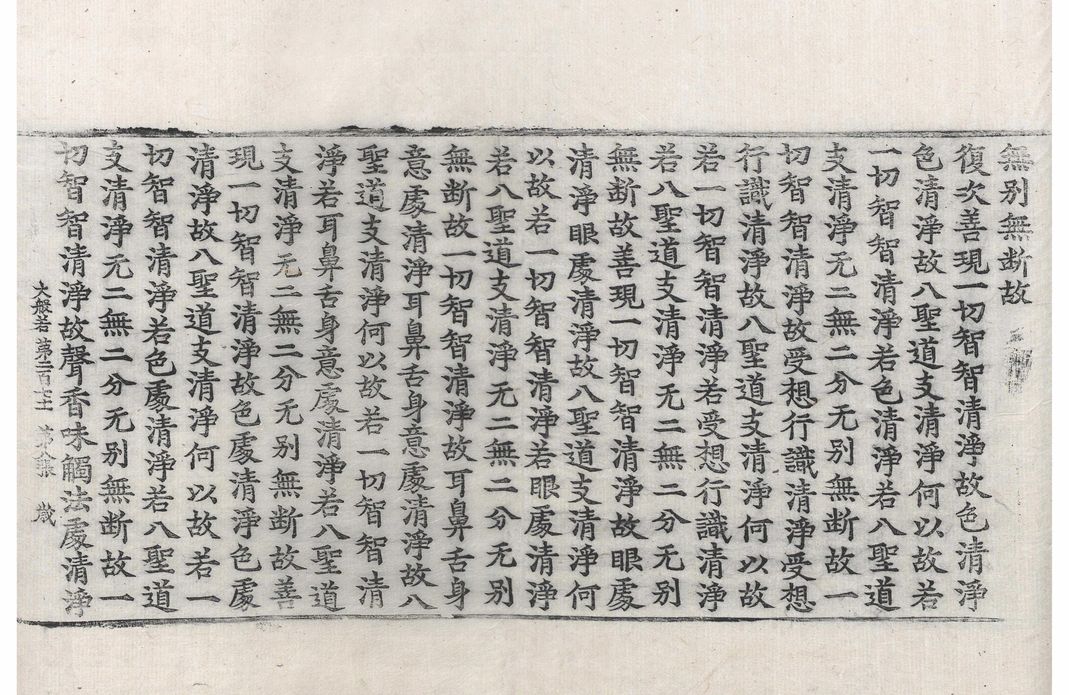 無别無断故
復次善現一切智智清淨故色清淨
色清淨故八聖道支清淨何以故若
一切智智清淨若色清淨若八聖道
支清淨无二無二分无别無断故一
切智智清淨故受想行識清淨受想
行識清淨故八聖道支清淨何以故
若一切智智清淨若受想行識清淨
若八聖道支清淨无二無二分无别
無断故善現一切智智清淨故眼處
清淨眼處清淨故八聖道支清淨何
以故若一切智智清淨若眼處清淨
若八聖道支清淨无二無二分无别
無断故一切智智清淨故耳鼻舌身
意處清淨耳鼻舌身意處清淨故八
聖道支清淨何以故若一切智智清
淨若耳鼻舌身意處清淨若八聖道
支清淨无二無二分无别無断故善
現一切智智清淨故色處清淨色處
清淨故八聖道支清淨何以故若一
切智智清淨若色處清淨若八聖道
支清淨无二無二分无别無断故一
切智智清淨故聲香味觸法處清淨
大般若 第二百 第 歲